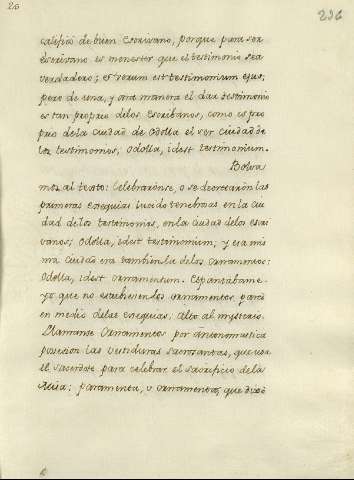 26
236
calificó de buen Escrivano, porque para ser
Escrivano es menester que el testimonio sea
verdadero; et verum est testimonium ejus;
pero de una, y otra manera el dar testimonio
es tan proprio de los Escribanos, como es pro
prio de la ciudad de Odolla el ser ciudad de
los testimonios; Odolla, idest testimonium.
Bolva
mos al texto: Celebraronse, o se decretaron las
primeras exequias lucido tenebrosas en la ciu
dad de los testimonios, en la ciudad de los escri
vanos; Odolla, idest testimonium; y esa mis
ma Ciudad era tambien la de los ornamentos:
Odolla, idest ornamentum. Espantabame
yo que no estubiesen los ornamentos para
en medio de las exequias. Alto al mysterio.
Llamanse Ornamentos por antonomastica
posesion las vestiduras sacrosantas, que usa
el sacerdote para celebrar el sacrificio de la
Misa: paramenta, v ornamentos, que dixo